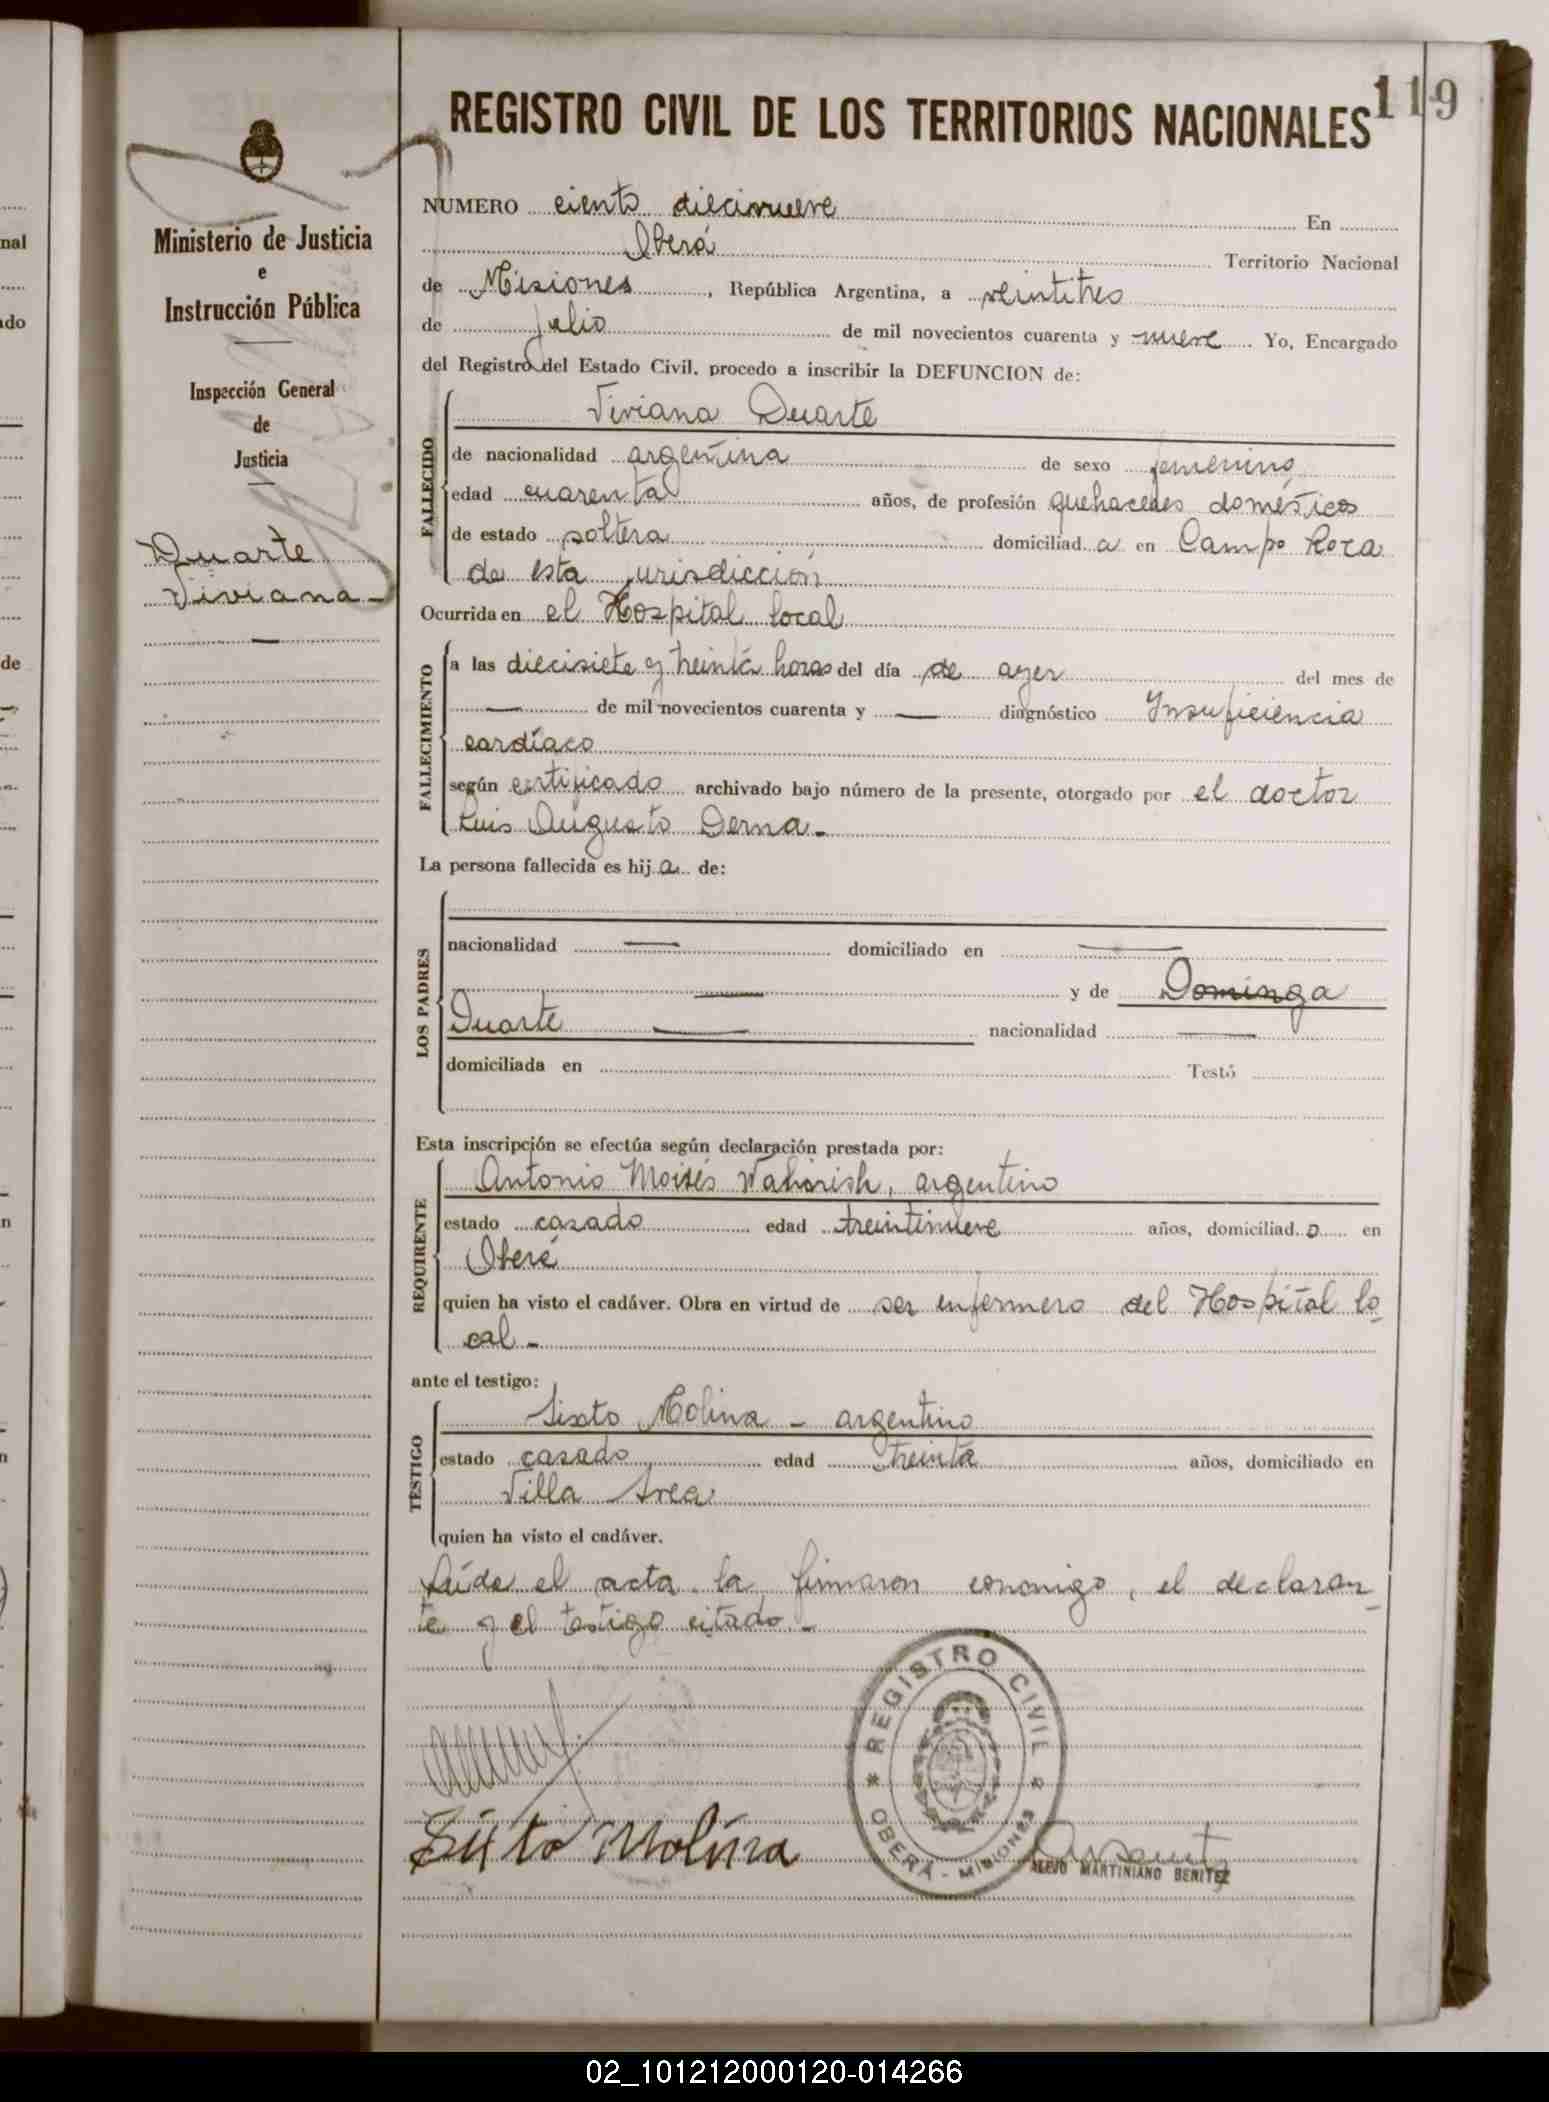 119
REGISTRO CIVIL DE LOS TERRITORIOS NACIONALES
Ministerio de Justicia
e
Instrucción Pública
Inspección General
de
Justicia
Duarte
Viviana
NUMERO ciento diecinueve En
Oberá Territorio Nacional
de Misiones, República Argentina, a veintitres
de julio de mil novecientos cuarenta y nueve Yo, Encargado
del Registro del Estado Civil, procedo a inscribir la DEFUNCION de:
FALLECIDO
Viviana Duarte
de nacionalidad argentina de sexo femenino
edad cuarenta años, de profesión quehaceres domésticos
de estado soltera domiciliad a en Campo Roca
de esta jurisdicción
Ocurrida en el Hospital local
FALLECIMIENTO
a las diecisiete y treinta horas del día de ayer del mes de
— de mil novecientos cuarenta y — diagnóstico Insuficiencia
cardíaco
según certificado archivado bajo número de la presente, otorgado por el doctor
Luis Augusto Derna.-
La persona fallecida es hij a de:
LOS PADRES
nacionalidad — domiciliado en —
— y de Dominga
Duarte — nacionalidad —
domiciliada en Testó
Esta inscripción se efectúa según declaración prestada por:
REQUIRENTE
Antonio Moisés Wahnish, argentino
estado casado edad treintinueve años, domiciliad o en
Oberá
quien ha visto el cadáver. Obra en virtud de ser enfermero del Hospital lo
cal -
ante el testigo:
TESTIGO
Sixto Molina - argentino
estado casado edad treinta años, domiciliado en
Villa
quien ha visto el cadáver.
Leída el acta la firmaron conmigo, el declaran
te y el testigo citado.-
REGISTRO CIVIL
OBERÁ - MISIONES
Sixto Molina
ALEJO MARTINIANO BENITEZ
02_101212000120-014266